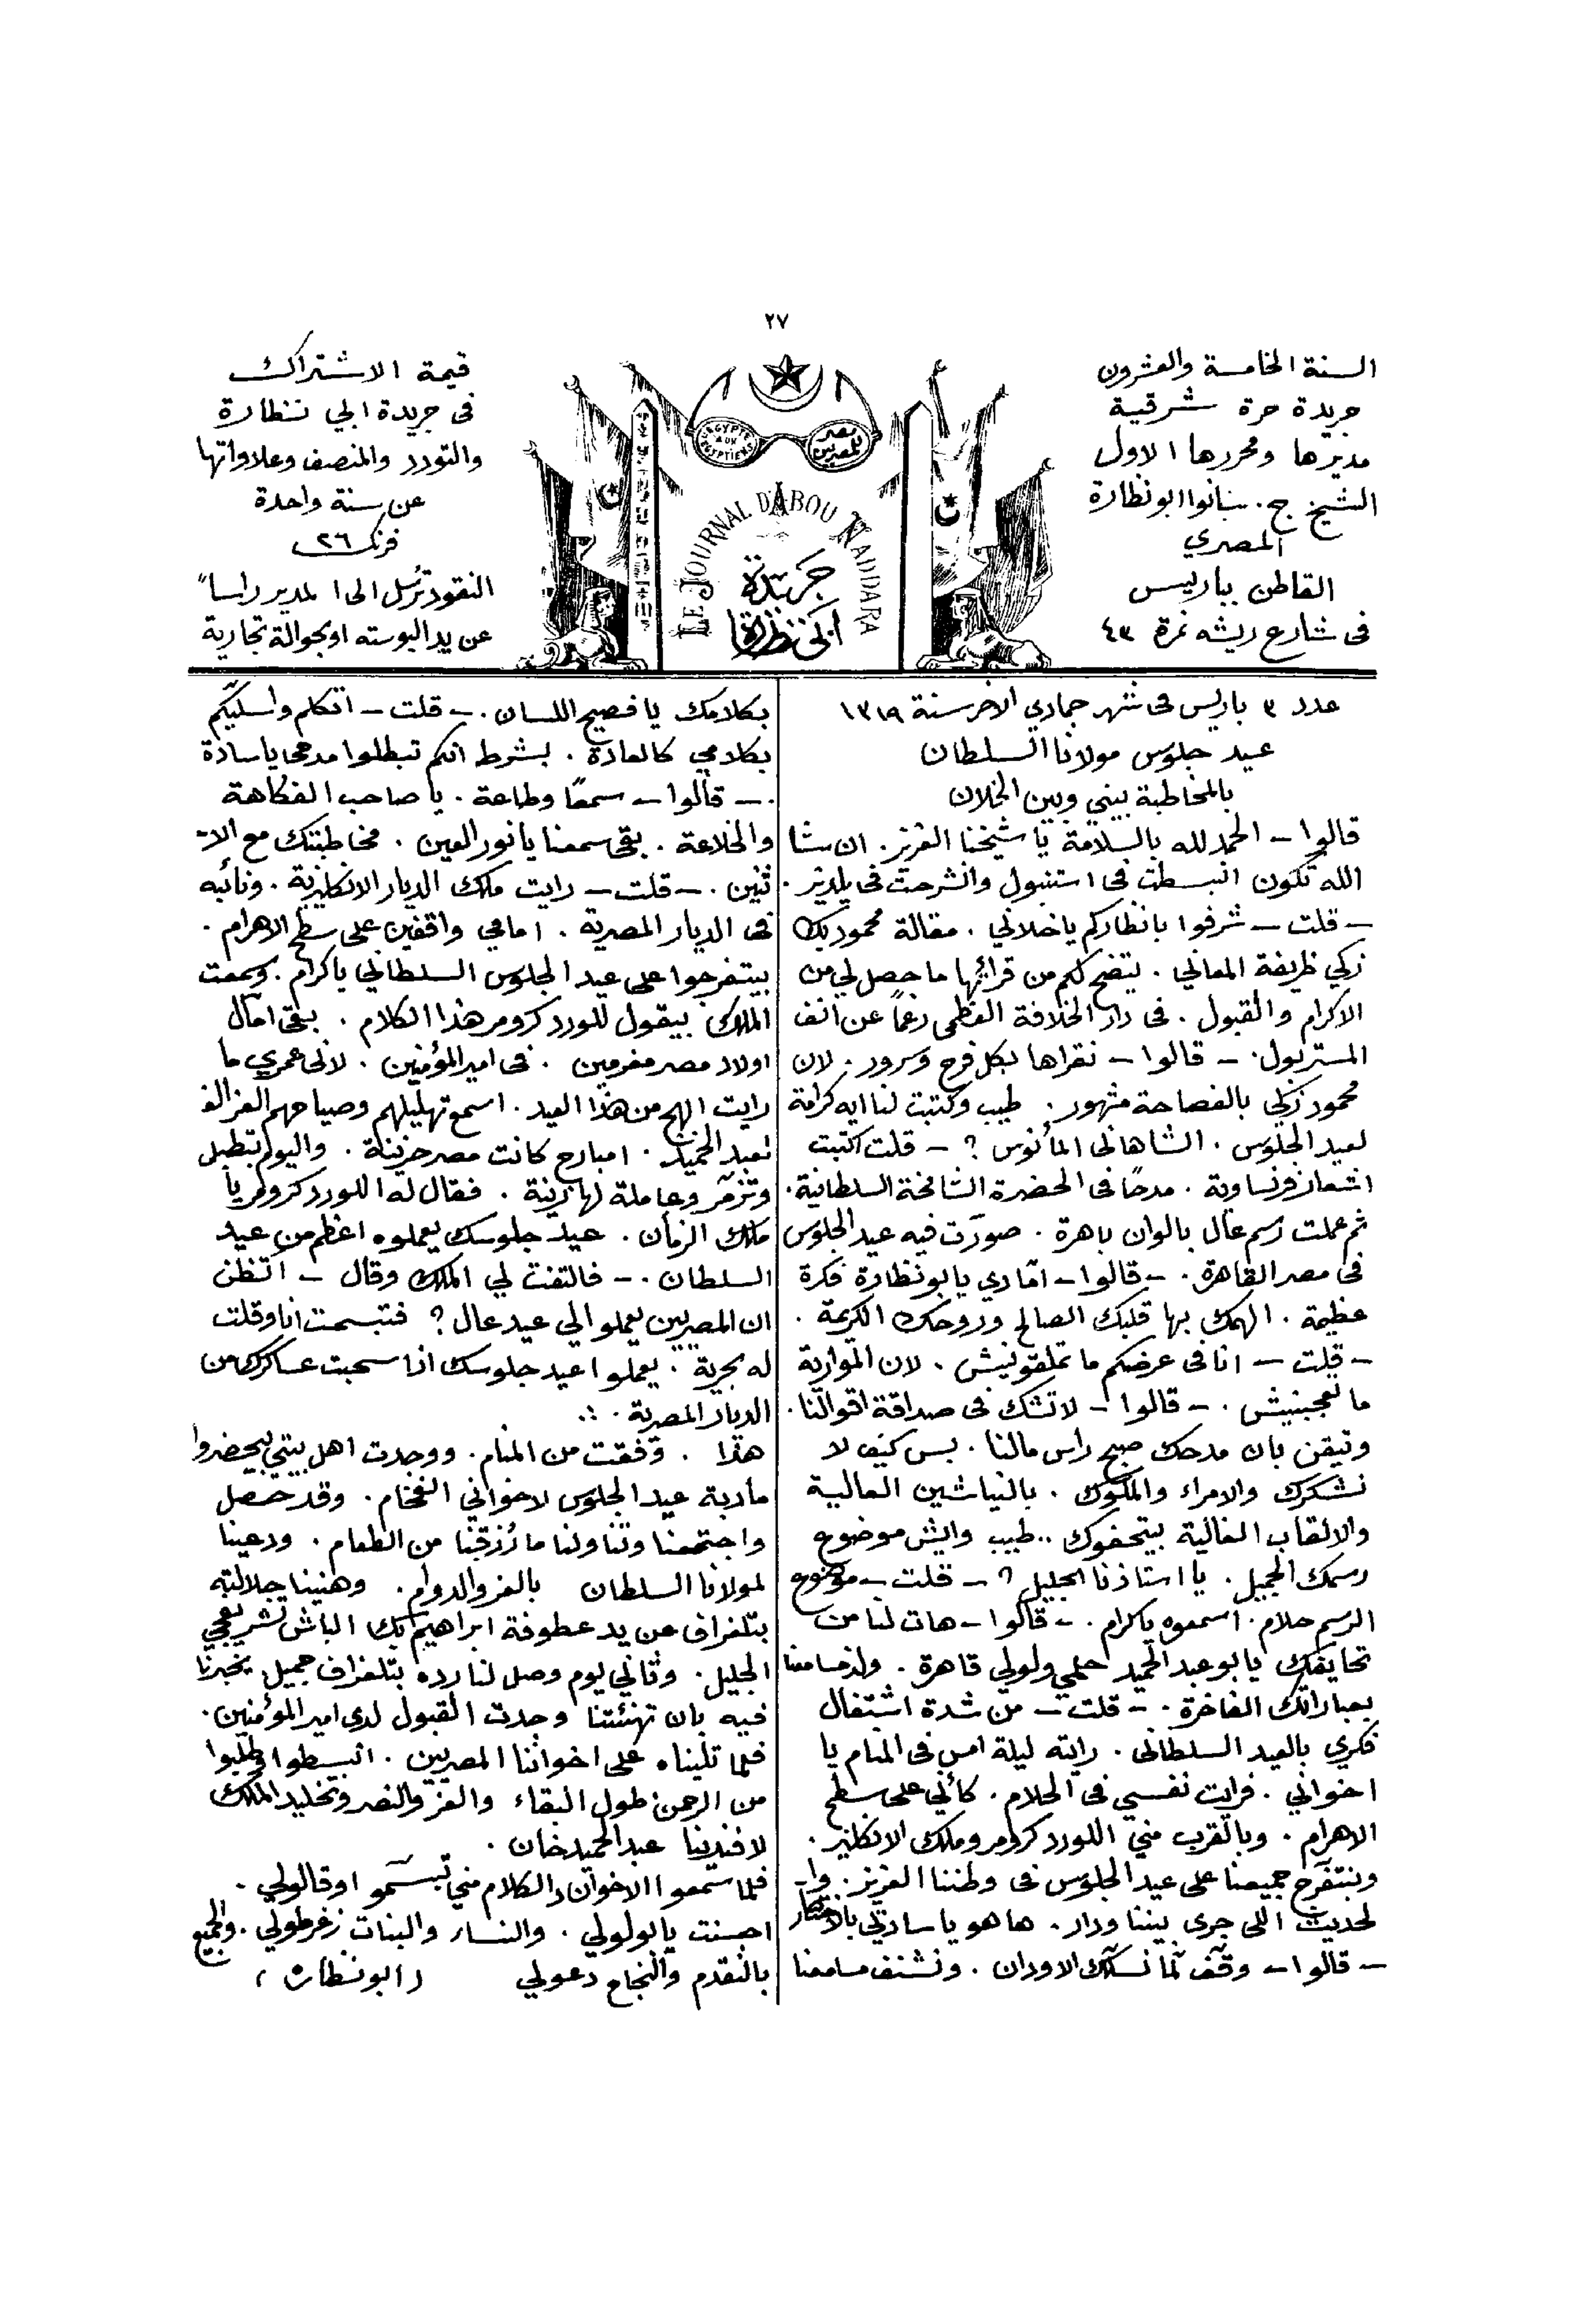 ٢٧
السنة الخامسة والعشرون
جريدة حرة شرقية
مديرها ومحررها الاول
الشيخ ج. سانوا ابو نظارة
المصري
القاطن بباريس
فى شارع ريشه نمرة ٤٣
مصر للمصريين
L'EGYPTE AUX EGYPTIENS
LE JOURNAL D'ABOU NADDARA
جريدة
ابى نظارة
قيمة الاشتراك
فى جريدة ابي نظارة
والتودد والمنصف وعلاواتها
عن سنة واحدة
فرنك ٢٦
النقود ترسل الى المدير راساً
عن يد البوسته او بحوالة تجارية
عدد ٣ باريس فى شهر جمادي الاخر سنة ١٣١٩
عيد جلوس مولانا السلطان
بالمخاطبة بيني وبين الخلان
قالوا – الحمد لله بالسلامة يا شيخنا العزيز. ان شا
الله تكون انبسطت فى استنبول وانشرحت فى يلديز.
– قلت – شرفوا بانظاركم يا خلاني. مقالة محمود بك
زكي ظريفة المعاني. يتضح لكم من قرائها ما حصل لي من
الاكرام والقبول. فى دار الخلافة العظمى رغماً عن انف
المستر بول. – قالوا – نقراها بكل فرح وسرور. لان
محمود زكي بالفصاحة مشهور. طيب وكتبت لنا ايه كرامة
لعيد الجلوس. الشاهانى المأنوس ? – قلت اكتبت
اشعار فرنساوية. مدحًا فى الحضرة الشامخة السلطانية.
ثم عملت رسم عال بالوان باهرة. صورت فيه عيد الجلوس
فى مصر القاهرة. – قالوا – امّا دي يابو نظارة فكرة
عظيمة. الهمك بها قلبك الصالح وروحك الكريمة.
– قلت – انا فى عرضكم ما تملقونيش. لان الموارية
ما تعجبنيش. – قالوا – لا تشك فى صداقة اقوالنا.
وتيقن بان مدحك صبح راس مالنا. بس كيف لا
نشكرك والامراء والملوك. بالنياشين العالية
والالقاب الغالية بيتحفوك.. طيب وايش موضوع
رسمك الجميل. يا استاذنا الجليل ? – قلت – موضوع
الرسم حلام. اسمعوه ياكرام. – قالوا – هات لنا من
تحايفك يابو عبد الحميد حلمي ولولي قاهرة. ولذ مسامعنا
بعباراتك الفاخرة. – قلت – من شدة اشتغال
فكري بالعيد السلطانى. رايته ليلة امس فى المنام يا
اخواني. فرايت نفسي فى الحلام. كأني على سطح
الاهرام. وبالقرب مني اللورد كرومر وملك الانكليز.
ونبتفرج جميعنا على عيد الجلوس فى وطننا العزيز. وا-
لحديث اللى جرى بيننا ودار. ها هو يا سادتي بالاختصار
– قالوا – وقف لمّا نسلّك الاودان. ونشنف مسامعنا
بكلامك يا فصيح اللسان. – قلت – اتكلم واسليكم
بكلامي كالعادة. بشرط انكم تبطلوا مدحى يا سادة
. – قالوا – سمعًا وطاعة. يا صاحب الفكاهة
والخلاعة. بقى سمعنا يا نور العين. مخاطبتك مع الا-
ثنين. – قلت – رايت ملك الديار الانكليزية. ونائبه
فى الديار المصرية. امامي واقفين على سطح الاهرام.
بيتفرجوا على عيد الجلوس السلطاني ياكرام. وسمعت
الملك بيقول للورد كرومر هذا الكلام. بقى امال
اولاد مصر مغرمين. فى امير المؤمنين. لانى عمري ما
رايت ابهج من هذا العيد. اسمع تهليلهم وصياحهم الفز الف
لعبد الحميد. امبارح كانت مصر حزينة. واليوم بتطبل
وتزمّر وعاملة لها زينة. فقال له اللورد كرومر يا
ملك الزمان. عيد جلوسك يعملوه اعظم من عيد
السلطان. – فالتفت لي الملك وقال – اتظن
ان المصريين يعملوا لي عيد عال ? فتبسمت انا وقلت
له بحرية. يعملوا عيد جلوسك اذا سحبت عساكرك من
الديار المصرية.
هذا. وفقت من المنام. ووجدت اهل بيتي بيحضروا
مأدبة عيد الجلوس لاخواني الفخام. وقد حصل
واجتمعنا وتناولنا ما رُزقنا من الطعام. ودعينا
لمولانا السلطان بالعز والدوام. وهنينا جلالته
بتلغراف عن يد عطوفة ابراهيم بك الباش تشريفجي
الجليل. وثاني يوم وصل لنا رده بتلغراف جميل يخبرنا
فيه بان تهنئتنا وجدت القبول لدى امير المؤمنين.
فلما تليناه على اخواننا المصريين. انبسطوا وطلبوا
من الرحمن طول البقاء والعز والنصر وتخليد الملك
لافندينا عبد الحميد خان.
فلما سمعوا الاخوان دالكلام مني تبسّموا وقالولي.
احسنت يابو لولي. والنساء والبنات زغرطولي. والجميع
بالتقدم والنجاح دعولي (ابو نظاره)